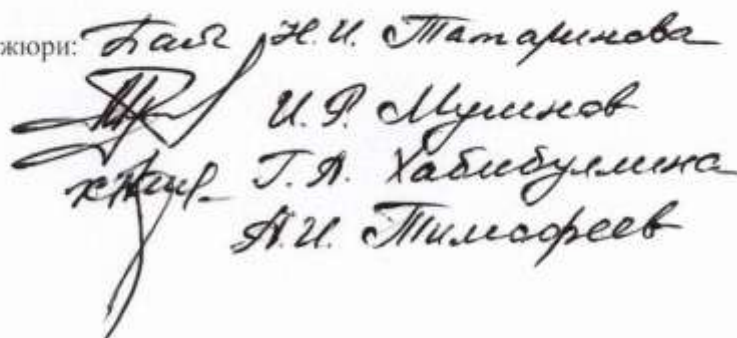 жюри: Н.И. Татаринова
И.Р. Муминов
Г.А. Хабибуллина
А.И. Тимофеев